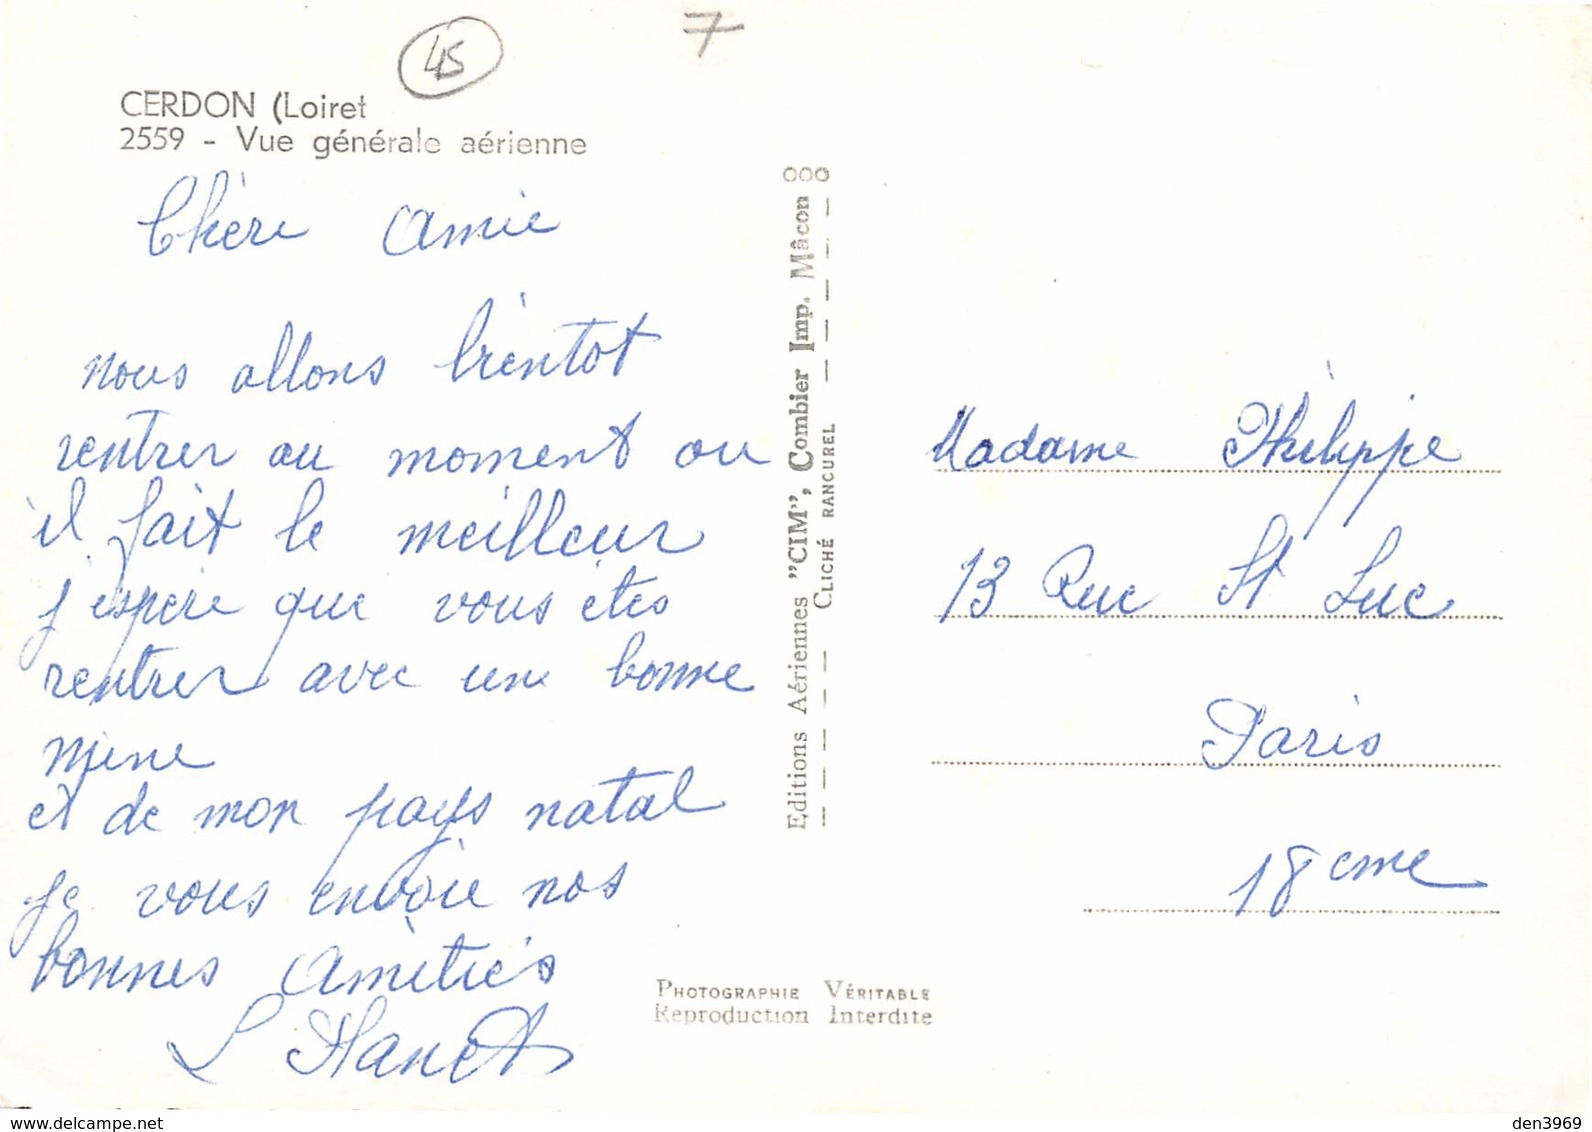 45
7
CERDON (Loiret
2559 - Vue générale aérienne
Chère Amie
nous allons bientot
rentrer au moment ou
il fait le meilleur
j'espère que vous êtes
rentrer avec une bonne
mine
et de mon pays natal
je vous envoie nos
bonnes Amitiés
L
Editions Aériennes "CIM", Combier Imp. Mâcon
CLICHÉ RANCUREL
Madame Philippe
13 Rue St Luc
Paris
18eme
PHOTOGRAPHIE VÉRITABLE
Reproduction Interdite
delcampe.net
den3969